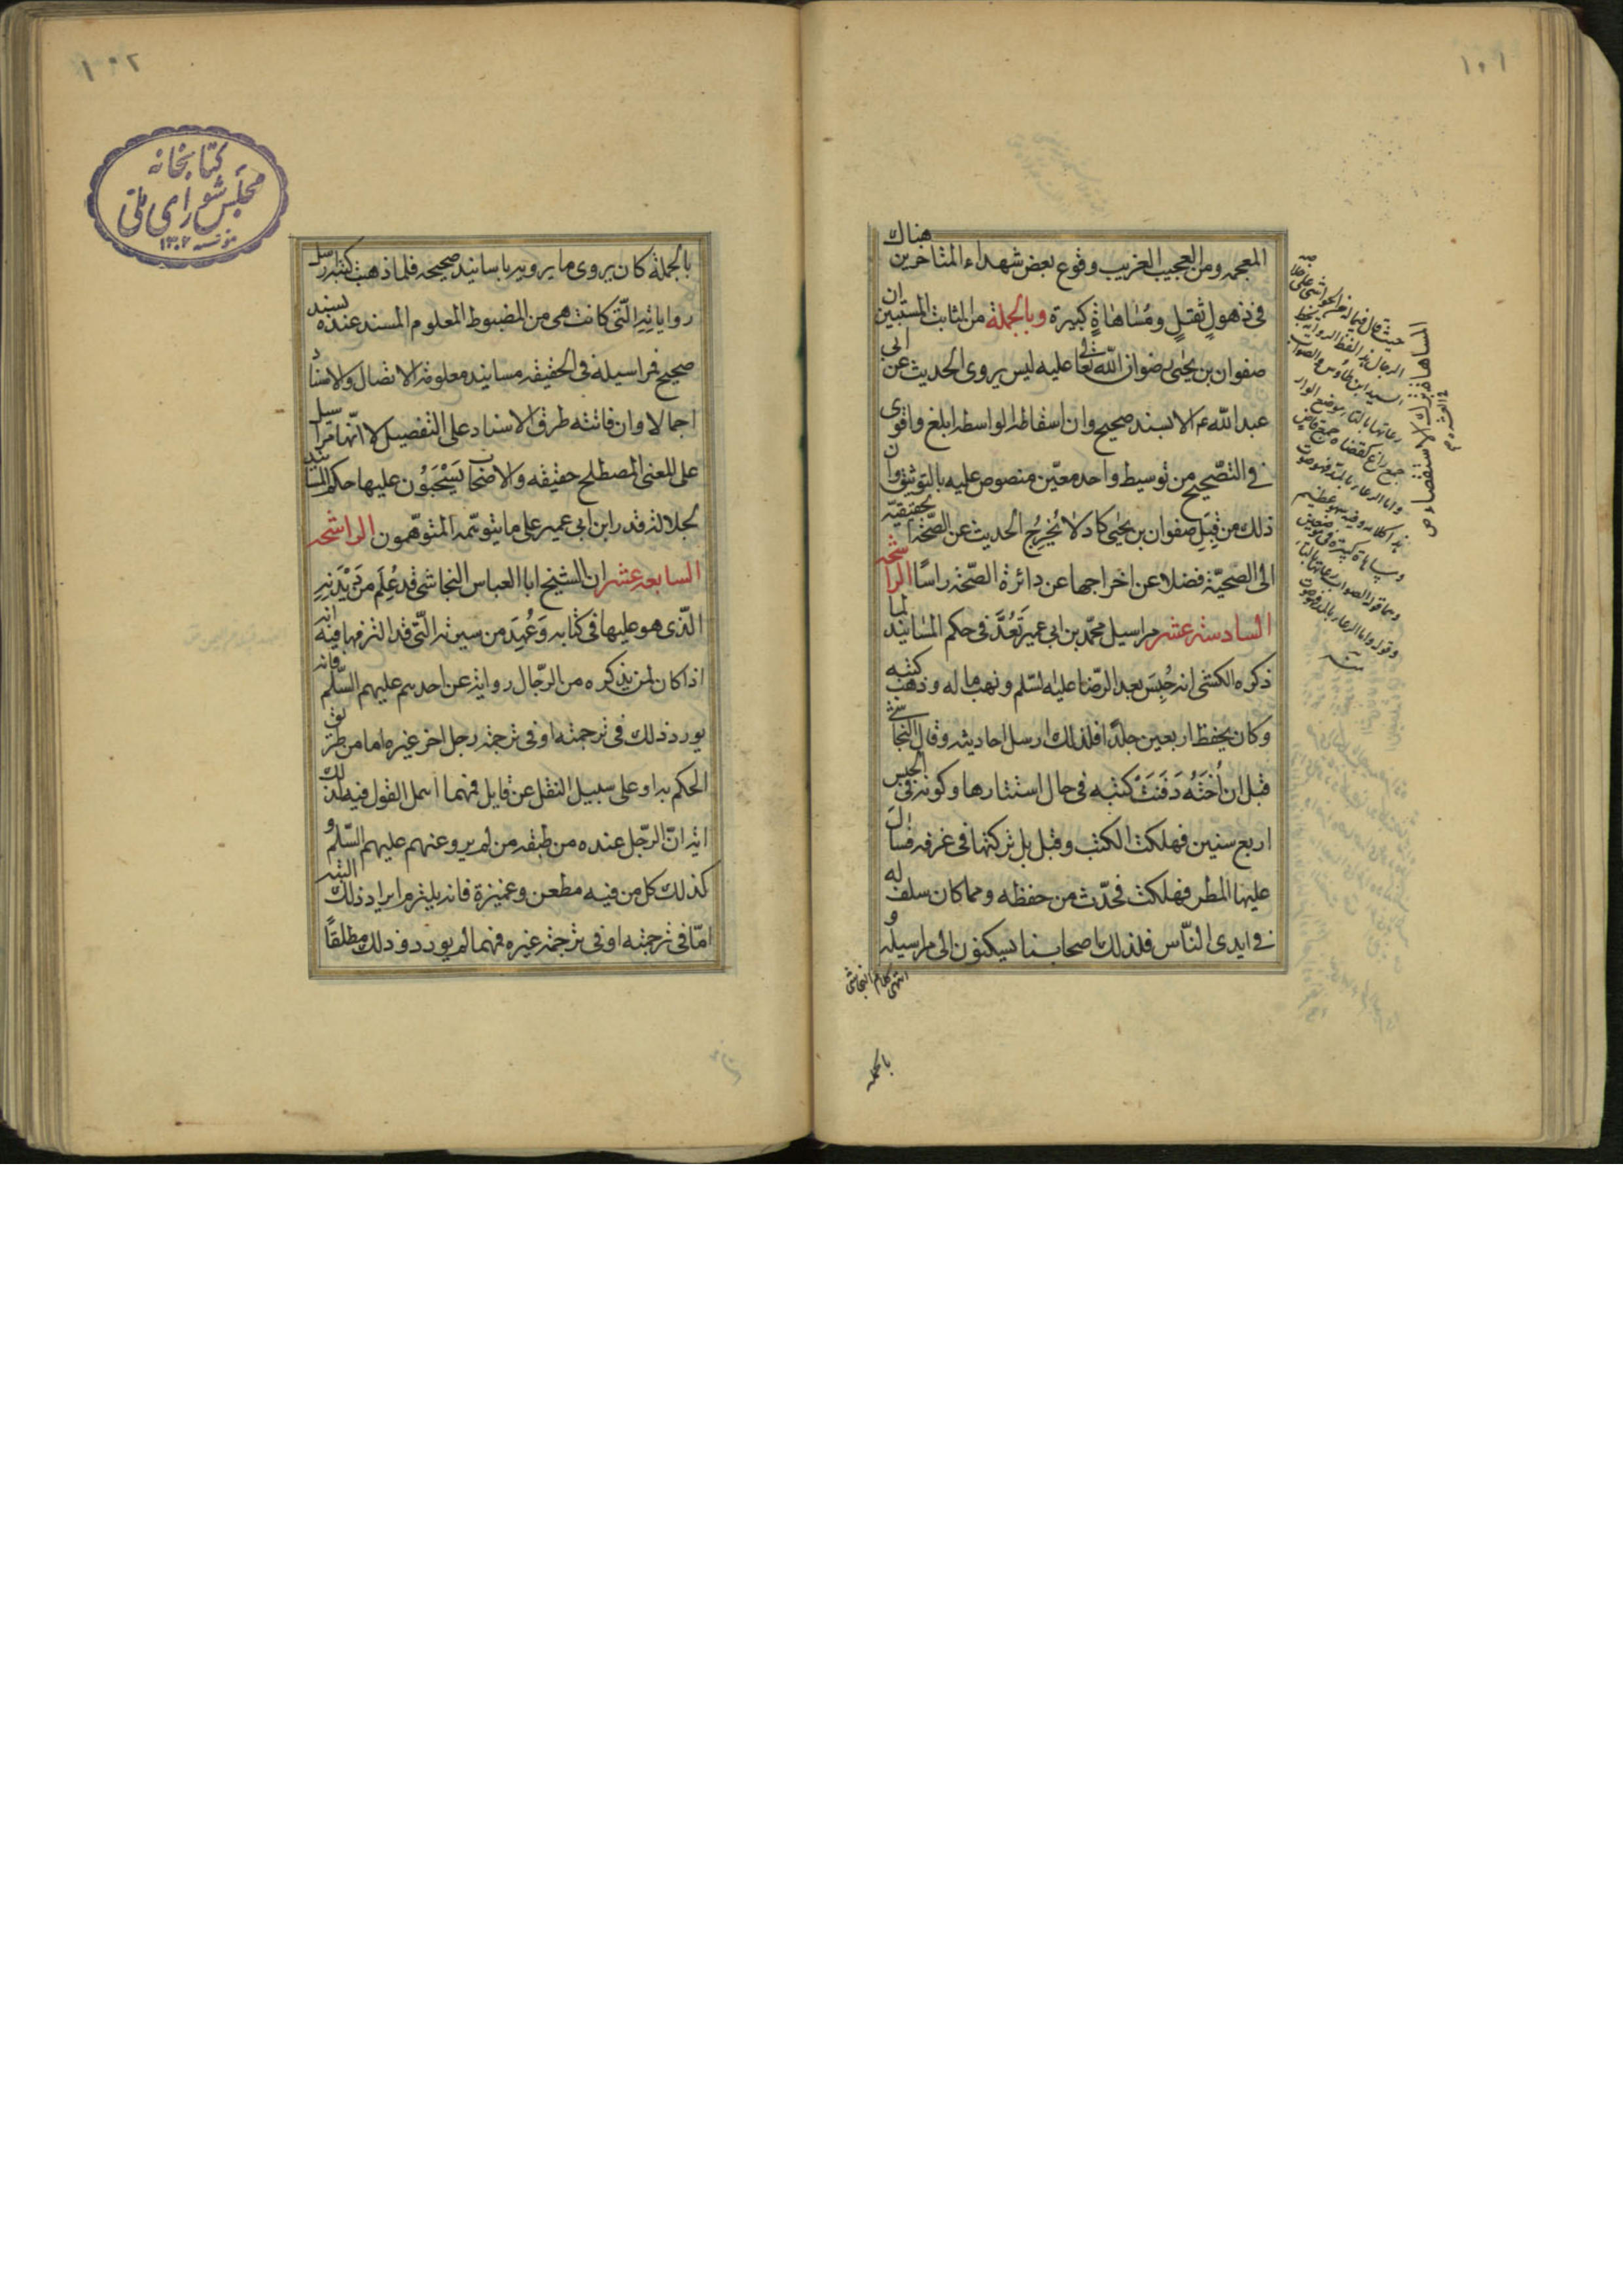 ١٠١
المعجمه ومن العجيب الغريب وقوع بعض شهداء المتاخرين هناك
فى ذهولٍ ثقيلٍ ومُساهاةٍ كبيرة وبالجملة من الثابت المستبين ان
صفوان بن يحيى رضوان الله تعالى عليه ليس يروى الحديث عن ابى
عبد الله ع الا بسند صحيح وان اسقاطه الواسطه ابلغ واقوى
فى التصحيح من توسيط واحد معيّن منصوص عليه بالتوثيق وان
ذلك من قِبَل صفوان بن يحيى كاد لا يُخرِجُ الحديث عن الصّحّة الحقيقيّه
الى الصحيّة فضلا عن اخراجها عن دائرة الصّحّة راسًا الراشحه
السادسة عشر مراسيل محمّد بن ابى عمير تُعَدُّ فى حكم المسانيد لما
ذكره الكشى انه حُبِسَ بعد الرّضا عليه السّلم ونهب ماله وذهب كتبه
وكان يحفظ اربعين جلدًا فلذلك ارسل احاديثه وقال النجاشى
قيل ان اُختَهُ دَفَنَتْ كتبه فى حال استتارها وكونه فى الحبس
اربع سنين فهلكت الكتب وقيل بل تركتها فى غرفه فسال
عليها المطر فهلكت فحدّث من حفظه ومما كان سلف له
فى ايدى النّاس فلذلك اصحابنا يسكنون الى مراسيله و
انتهى كلام النجاشى
بالجمله
المساهاة ترك الاستقصاء ص
فى العشره
حيث قال فيما له من الحواشى على خلاصة
الرجال هذا لفظ الرواية بخط
السيد ابن طاوس والصواب
١٠٢
كتابخانه
مجلس شوراى ملى
مؤسسه ١٣٠٢
بالجملة كان يروى ما يرويه باسانيد صحيحه فلما ذهب كتبه ارسل
رواياته الّتى كانت هى من المضبوط المعلوم المسند عنده بسند
صحيح فمراسيله فى الحقيقه مسانيد معلومة الاتصال والاسناد
اجمالا وان فاتته طرق الاسناد على التفصيل لا انّها مراسيل
على المعنى المصطلح حقيقه والاصحاب يَسْحَبُون عليها حكم المسانيد
لجلالة قدر ابن ابى عمير على ما يتوهّمه المتوهّمون الراشحه
السابعه عشر ان الشيخ ابا العباس النجاشى قد عُلِمَ من دَيْدَنِهِ
الّذى هو عليها فى كتابه وَعُهِدَ من سيرته الّتى قد التزمها فيه انه
اذا كان لمن يذكره من الرّجال رواية عن احدهم عليهم السّلم فانه
يورد ذلك فى ترجمته او فى ترجمة رجل اخر غيره اما من طريق
الحكم به او على سبيل النقل عن قايل فمهما اهمل القول فيه فذلك
اية انّ الرّجل عنده من طبقة من لم يرو عنهم عليهم السّلم و
كذلك كل من فيه مطعن وغميزة فانه يلتزم ايراد ذلك البته
امّا فى ترجمته او فى ترجمة غيره فمهما لم يورد وذلك مطلقًا